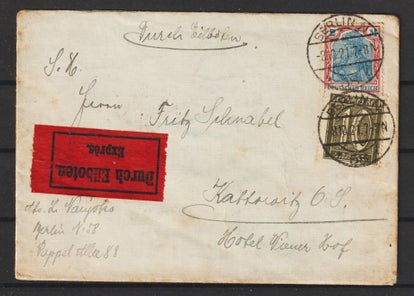 Durch Eilboten
S. H.
Herrn
Fritz Schnabel
Durch Eilboten
Exprés.
Kattowitz O.S.
Hotel Wiener Hof
Berlin N.58
Pappel Allee 88
BERLIN
DEUTSCHES REICH
10